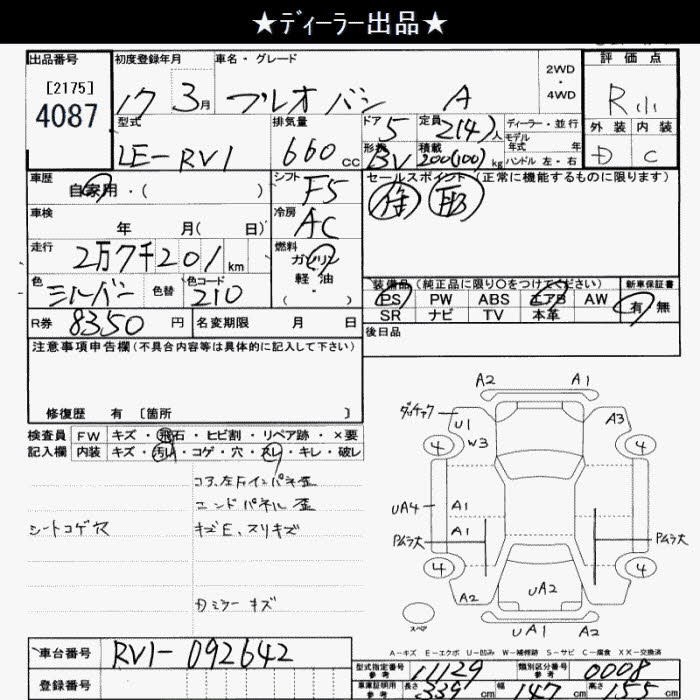 ★ディーラー出品★
出品番号 初度登録年月 車名・グレード 2WD・4WD 評価点
[2175]
4087
17 3月 プレオバン A R小
型式 排気量 ドア 定員 ディーラー・並行 外装 内装
LE-RV1 660cc 5 2(4)人 モデル年式 年 D C
形状 積載 ハンドル 左・右
BV 200(100)kg
車歴 自家用・( ) シフト F5 セールスポイント(正常に機能するものに限ります)
車検 年 月( 日) 冷房 AC
走行 2万7千201km 燃料 ガソリン 軽油 ( )
色 シルバー 色替 色コード 210 装備品(純正品に限り○をつけてください) 新車保証書
PS PW ABS エアB AW 有 無
SR ナビ TV 本革
R券 8350円 名変期限 月 日 後日品
注意事項申告欄(不具合内容等は具体的に記入して下さい)
修復歴 有 [箇所 ]
検査員 FW キズ・飛石・ヒビ割・リペア跡・×要
記入欄 内装 キズ・汚れ・コゲ・穴・スレ・キレ・破レ
コア、左Fインパネ歪
エンドパネル 歪
シートコゲ穴 キズE、スリキズ
カミラー キズ
A2 A1
U1 W3 A3
4 4
UA4 A1
A1
4 4
A2 UA2
UA1 A2
スペア
A-キズ E-エクボ U-凹み W-補修跡 S-サビ C-腐食 XX-交換済
車台番号 RV1-092642
型式指定番号 参考 11129 類別区分番号 参考 0008
登録番号 車庫証明用 参考 長さ 339cm 幅 147cm 高さ 155cm